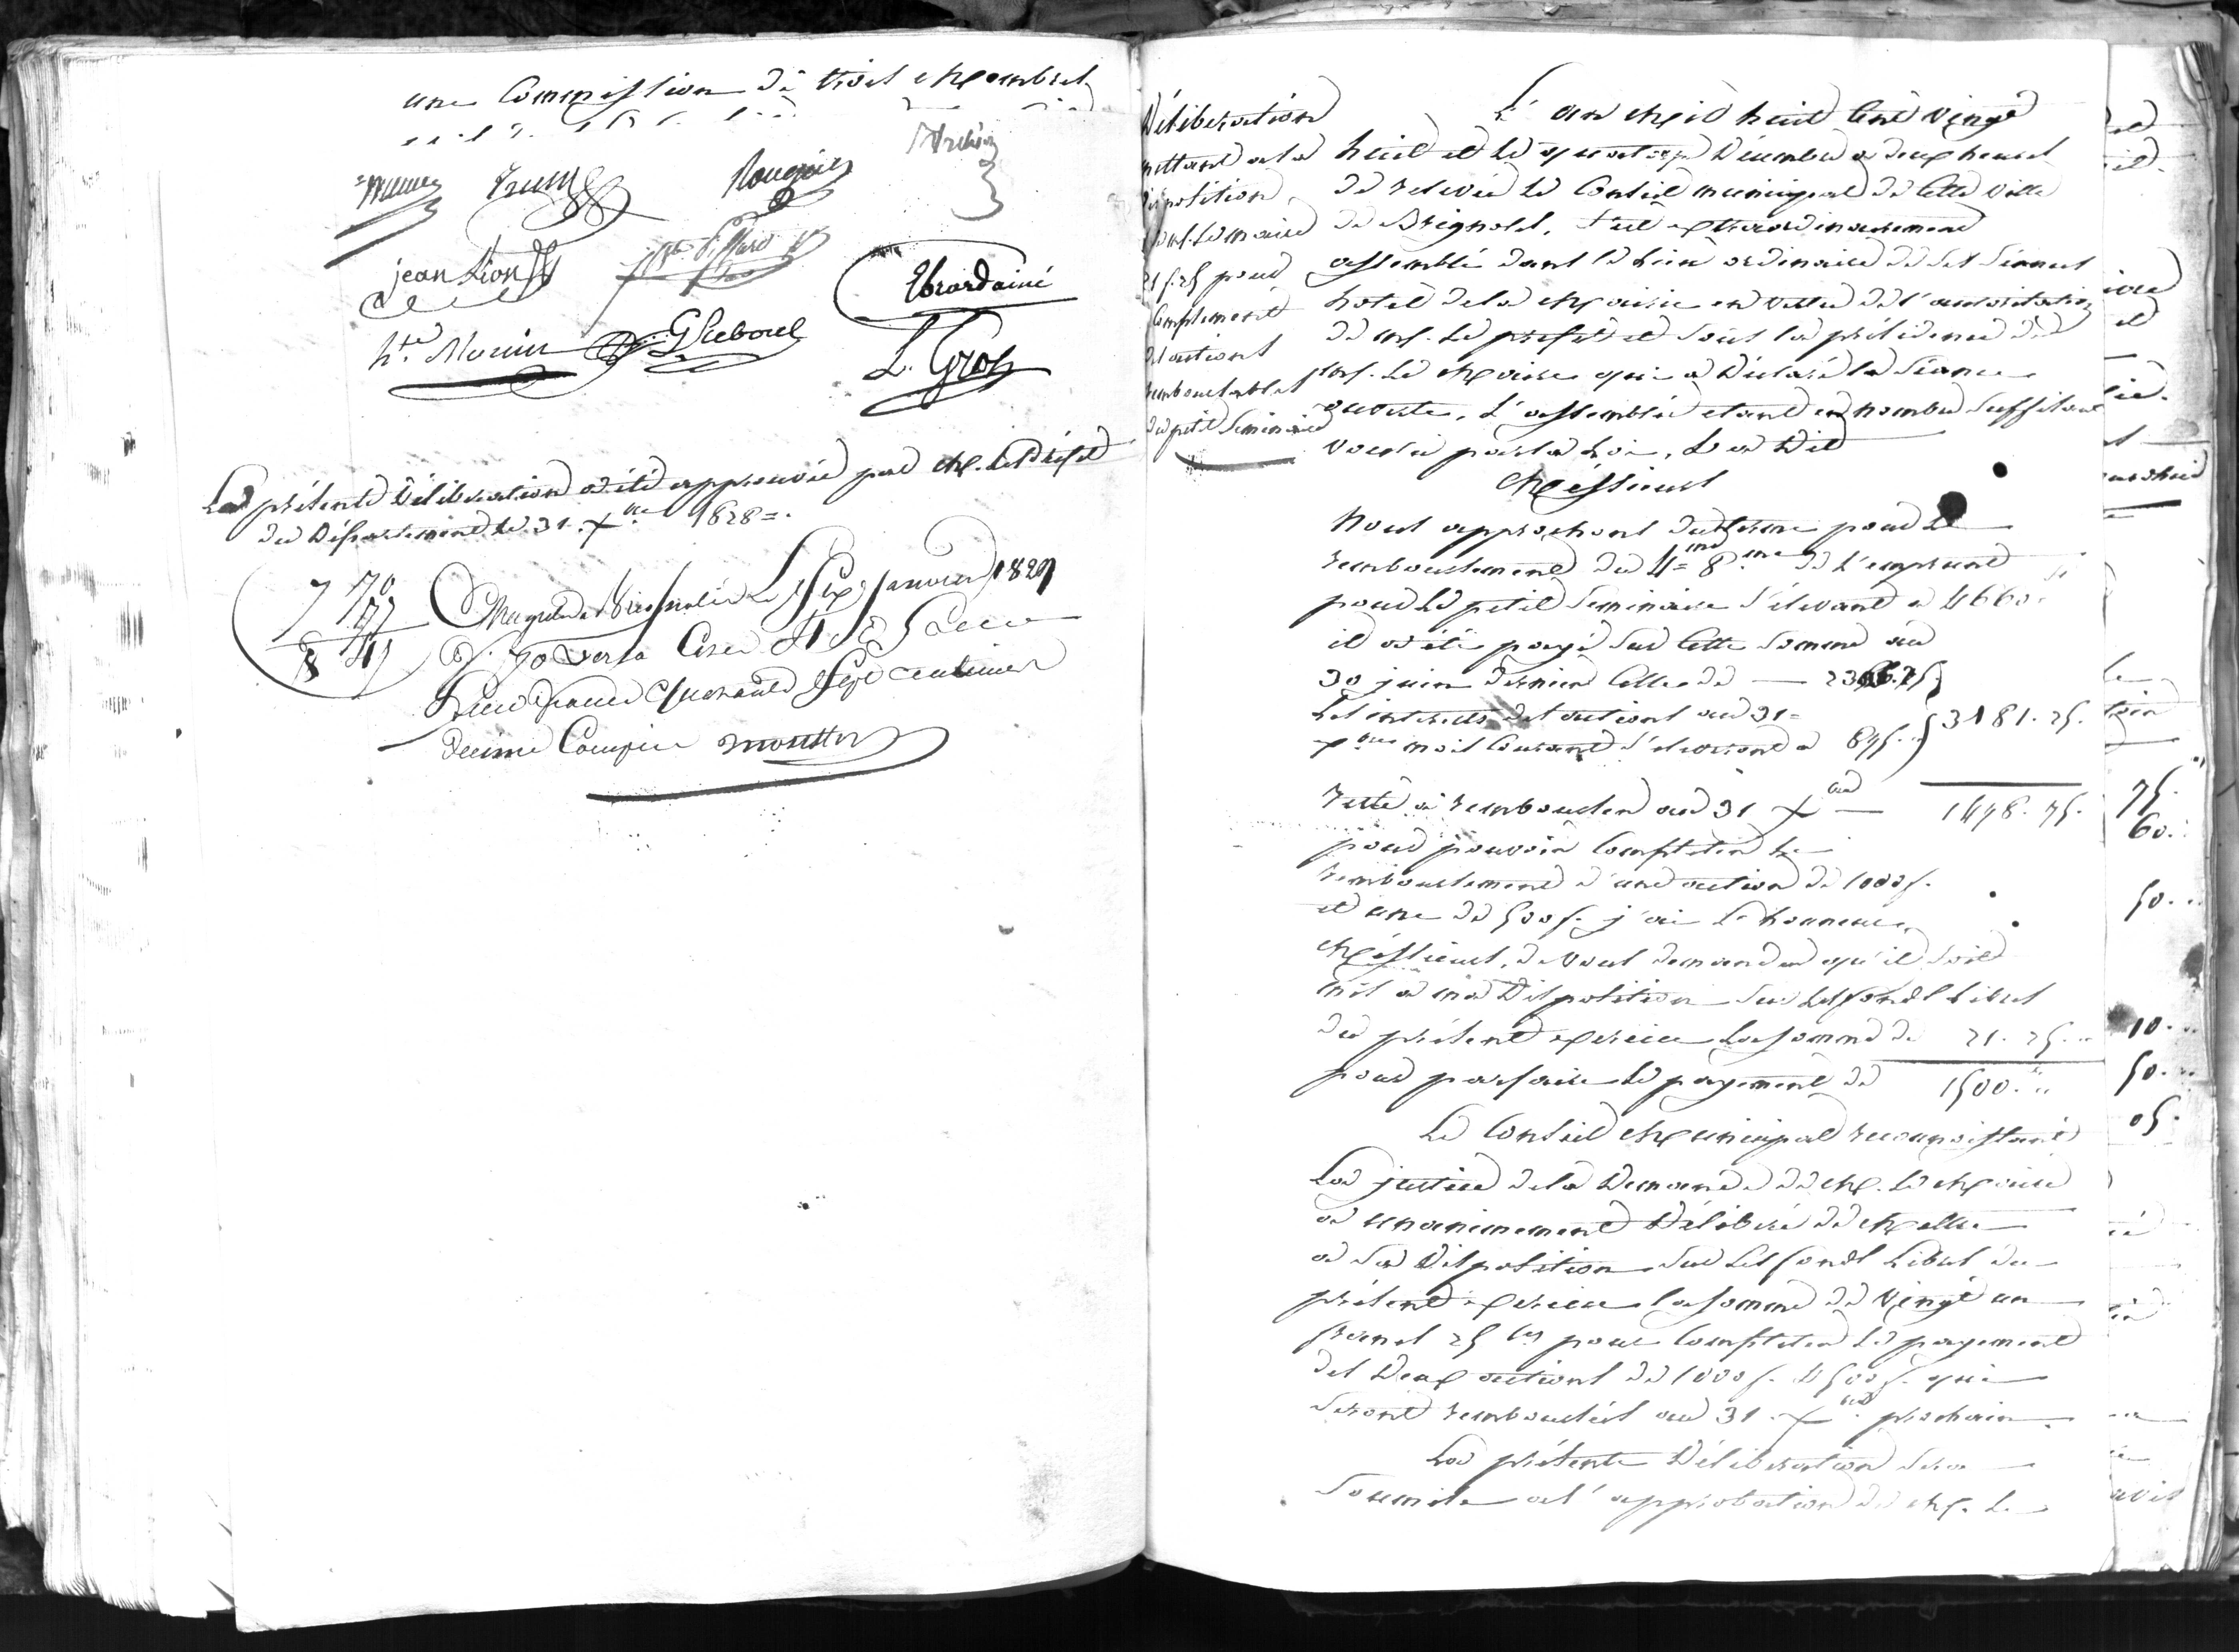 une Commission de trois Membres
jean Lion
Ebrard ainé
hte. Monier
G Reboul
L. Gros
La présente Délibération a été approuvée par M. le Préfet
du Département le 31 Xbre 1828 =.
7 70
77
8 47
Enregistré à Brignoles Le Six Janvier 1829
fo. 70 verso Case
huit francs quarante Sept centimes
décime Compris
Délibération
mettant à la
disposition
de M. le maire
21 f. 25 pour
Complement
d'actions
remboursables
du petit Seminaire
L'an Mil huit Cent Vingt
huit et le quatorze Décembre à deux heures
de relevée le Conseil municipal de Cette Ville
de Brignoles, s'est extraordinairement
assemblé dans le lieu ordinaire de ses séances
hotel de la Mairie en vertu de l'autorisation
de M. le préfet et sous la présidence de
M. le Maire qui a Déclaré la séance
ouverte, L'assemblée etant en nombre suffisant
voulu par la Loi, Il a Dit
Messieurs
Nous approchons du terme pour le
remboursement du 4= 8.me de l'emprunt
pour le petit Seminaire s'élevant à 4660 "
il a été payé sur Cette Somme au
30 juin dernier Celle de — 2366.25
Les interets des actions au 31=
Xbre mois Courant s'élevant à 815. " } 3181. 25.
reste à rembourser au 31 Xbre — 1478. 75.
pour pouvoir Completer le
remboursement d'une action de 1000 f.
et une de 500 f. j'ai L'honneur,
Messieurs, de vous demander qu'il soit
mis à ma Disposition sur les fonds libres
du présent exercice la somme de 21. 25. "
pour parfaire le payement de 1500. "
Le Conseil Municipal reconnoissant
La justice de la Demande de M. le Maire
a unanimement Délibéré de Mettre
à sa Disposition sur les fonds libres du
présent exercice la somme de Vingt un
francs 25 cs pour Completer le payement
des Deux actions de 1000 f. & 500 f. qui
seront remboursées au 31 Xbre prochain.
La présente Délibération sera
soumise à l'approbation de M. le
75.
60.
50.
10.
50.
05.